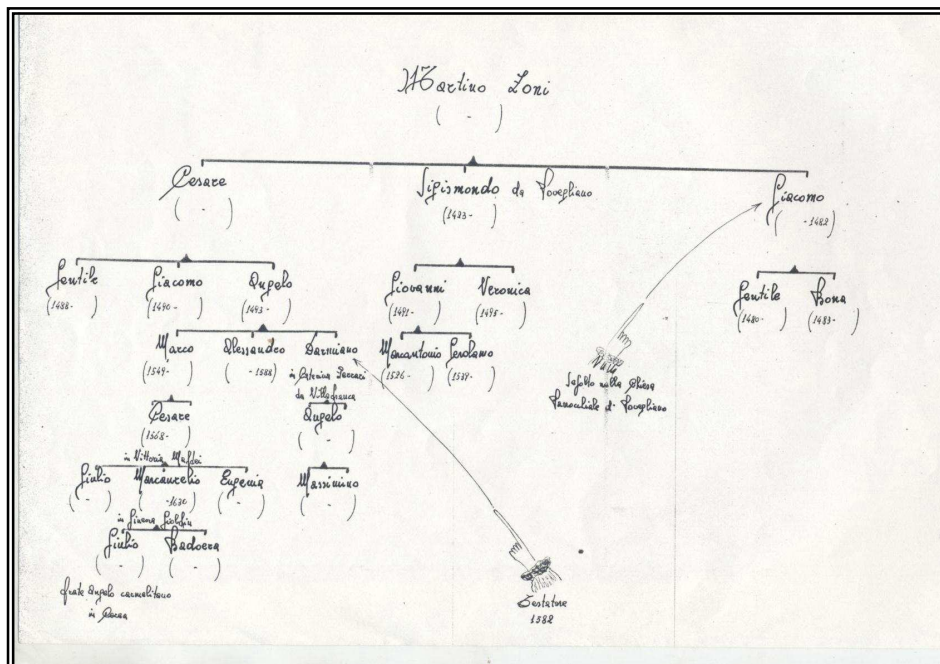 Martino Zoni
( - )
Cesare
( - )
Sigismondo da Povegliano
(1423-
)
Giacomo
( -1482
)
Gentile
(1488- )
Giacomo
(1490- )
Angelo
(1493- )
Giovanni
(1491- )
Veronica
(1495- )
Gentile
(1480- )
Bona
(1483- )
Marco
(1549- )
Alessandro
( -1588)
Darmiano
in
da Villafranca
Marcantonio
(1526- )
Gerolamo
(1539- )
Sepolto nella Chiesa
Parrocchiale di Povegliano
Cesare
(1568- )
in Vittoria Maffei
Angelo
( - )
Giulio
( - )
Marcaurelio
( -1630)
in Ginevra
Eugenia
( - )
Massimino
( - )
Giulio
( - )
Badoera
( - )
frate Angelo carmelitano
in
Testatore
1582